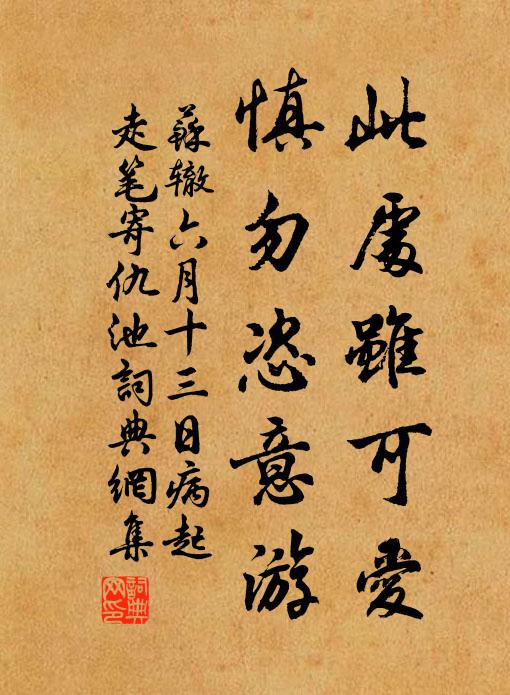 此處雖可愛
慎勿恣意游
蘇辙六月十三日病起
走笔寄仇池詞典網集
詞典
网印